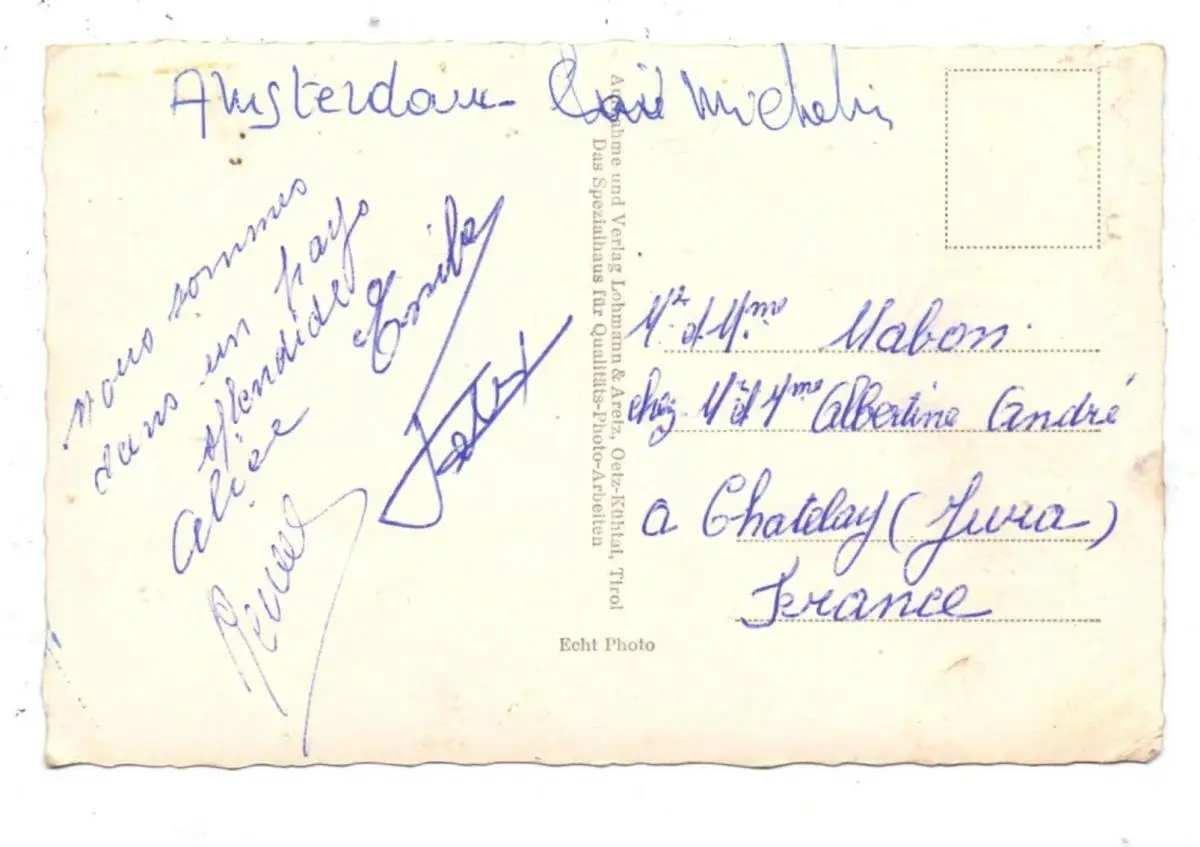 Amsterdam Michelin
nous sommes
dans un pays
splendide
Alice
Emile
Mr. et Mme Mabon.
chez Mr et Mme Albertine André
a Chatelay (Jura)
France
Aufnahme und Verlag Lohmann & Aretz, Oetz-Kühtai, Tirol
Das Spezialhaus für Qualitäts-Photo-Arbeiten
Echt Photo